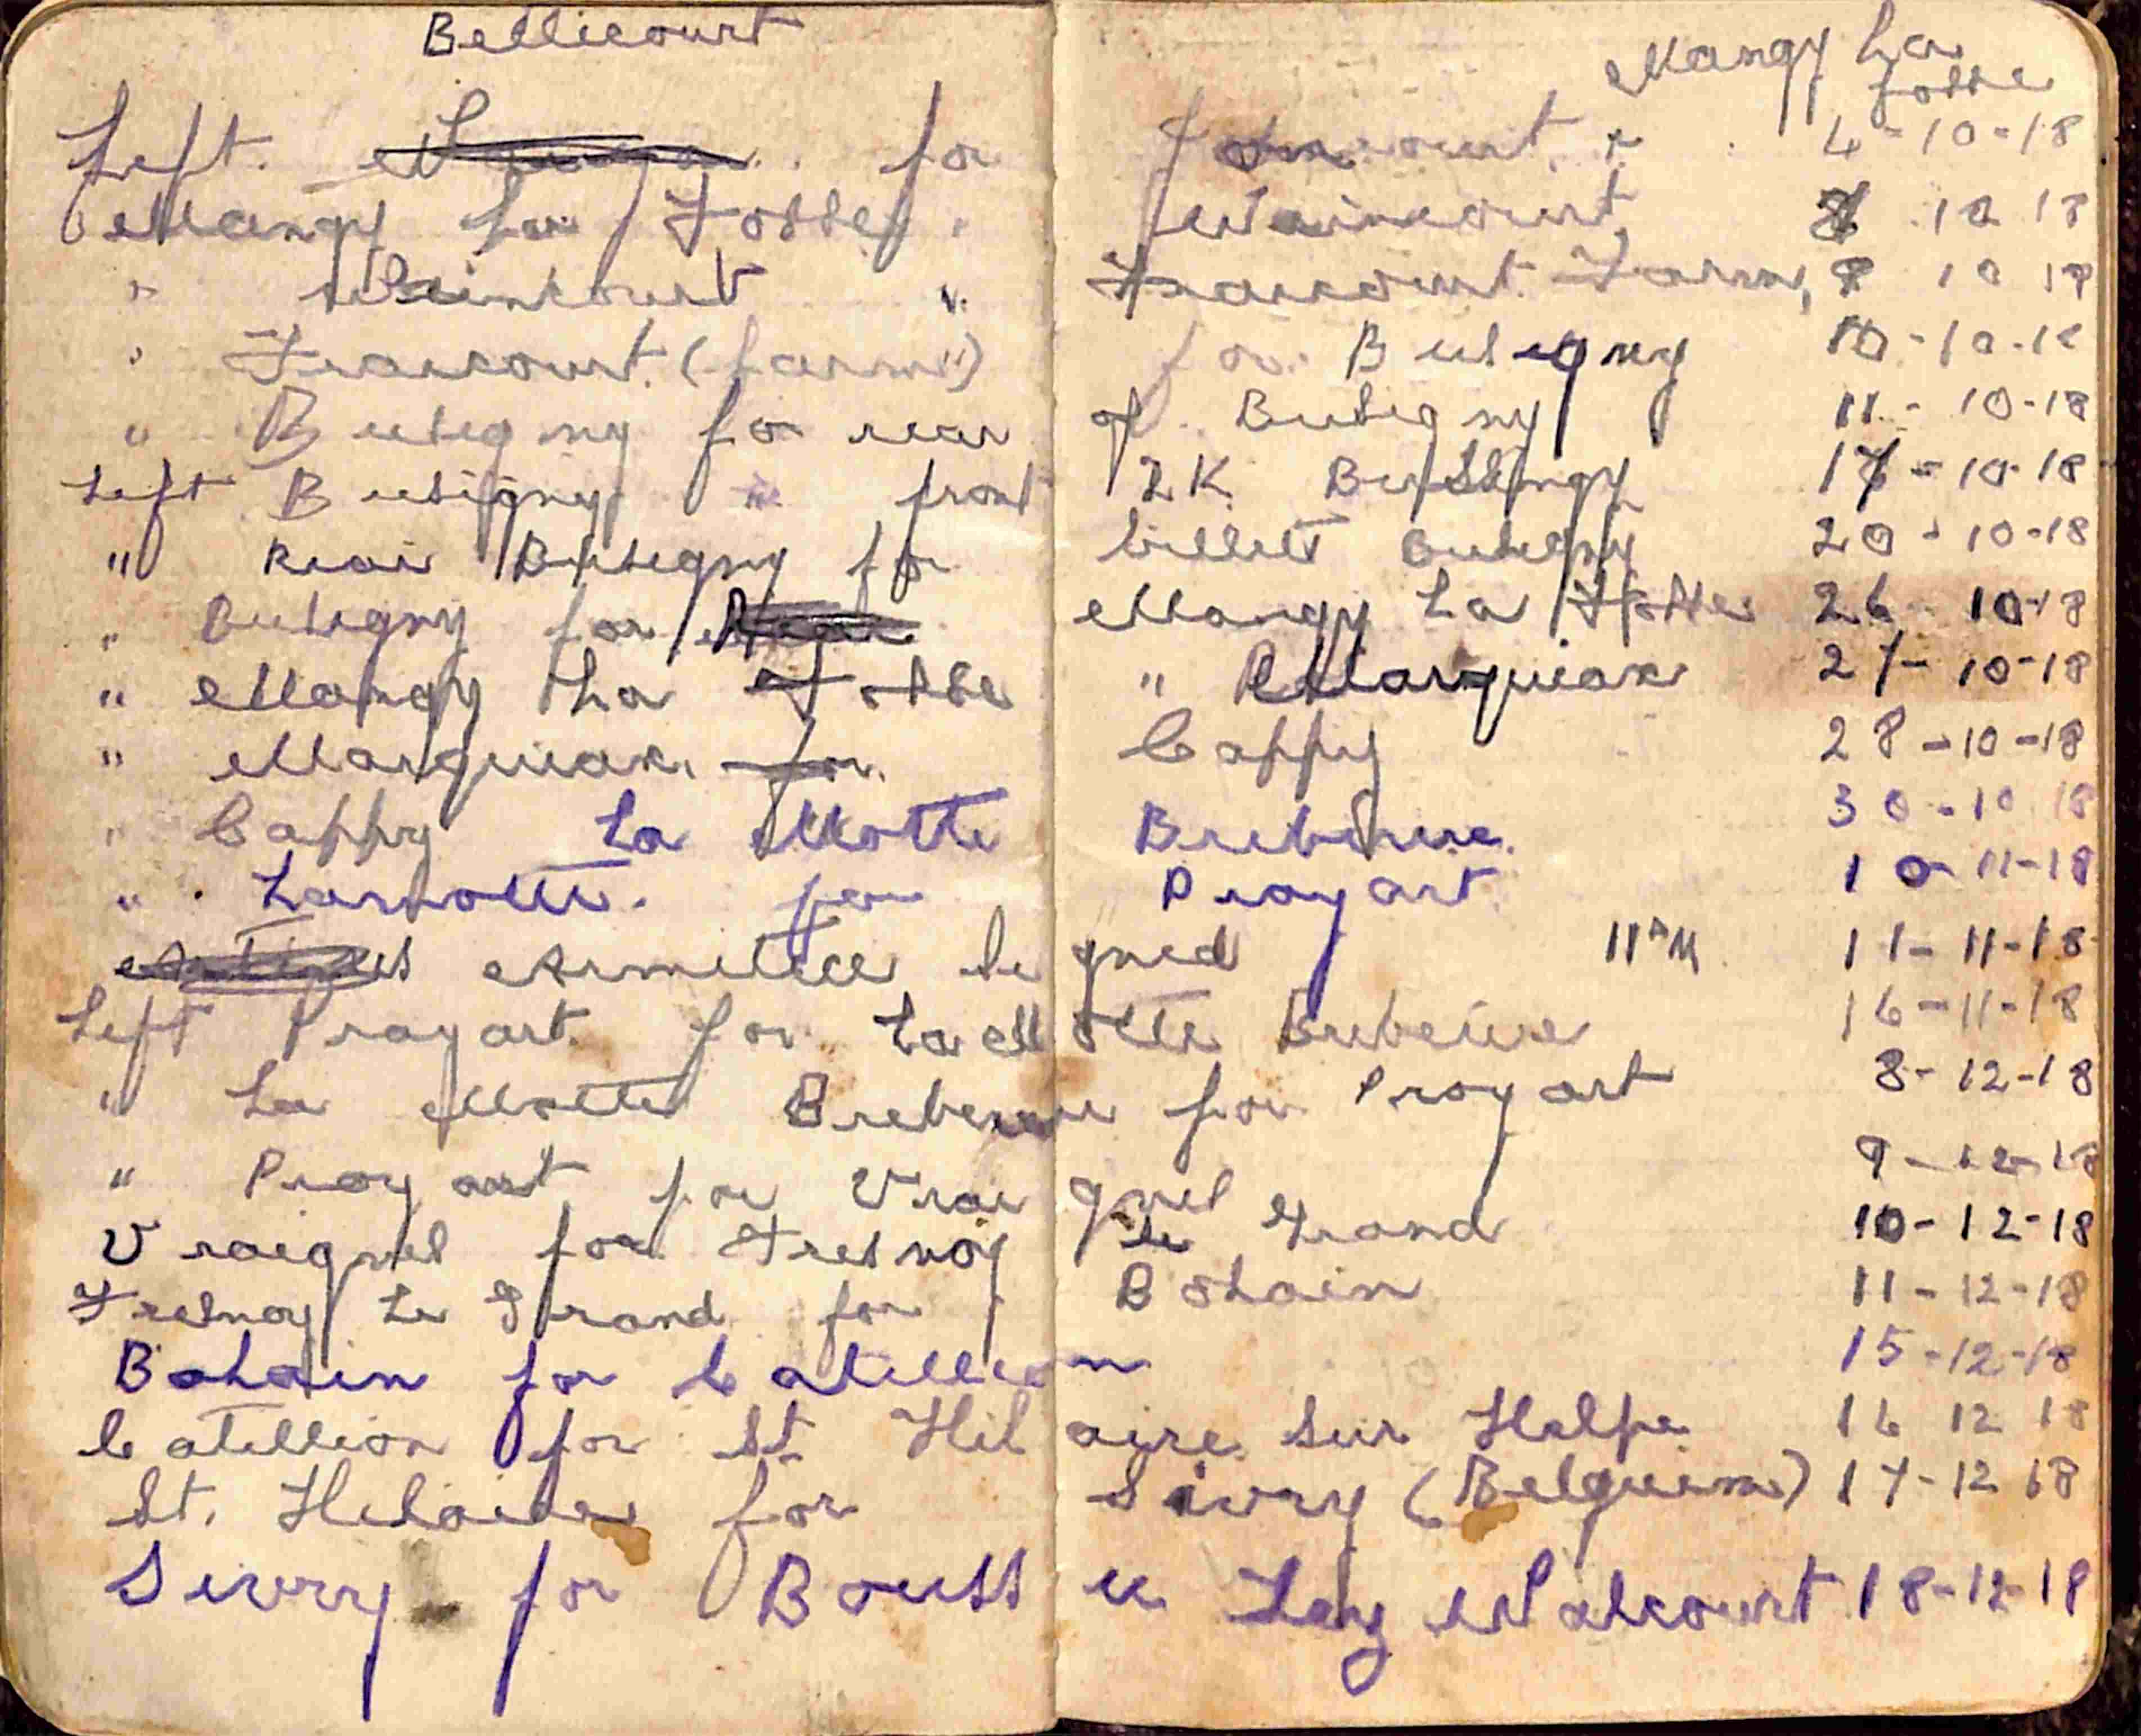 Bellicourt
Mangy La Fosse
Left for Joncourt 4-10-18
Mangy La Fosse Waincourt 10 18
" Waincourt " Fraicourt Farm, 8 10 18
" Fraicourt (farm) for Busigny 10-10-18
" Busigny for rear of Busigny 11-10-18
Left Busigny " front 2K Bussingy 17-10-18
" Rear Busigny for billets Busigny 20-10-18
" Busigny for Mangy La Fosse 26-10-18
" Mangy La Fosse " Marquiax 27-10-18
" Marquiax for Cappy 28-10-18
" Cappy La Motte Brebiere 30-10 18
" Lamotte for Proyart 10-11-18
Armistice signed 11AM 11-11-18
Left Proyart for La Motte Brebeire 16-11-18
" La Motte Brebeire for Proyart 8-12-18
" Proyart for Vraignes 9-12-18
Vraignes for Fresnoy Le Grand 10-12-18
Fresnoy Le Grand for Bohain 11-12-18
Bohain for Catillion 15-12-18
Catillion for St. Hilaire Sur Helpe 16 12 18
St. Hilaire for Sivry (Belguim) 17-12 18
Sivry for Boussu Lay Walcourt 18-12-18